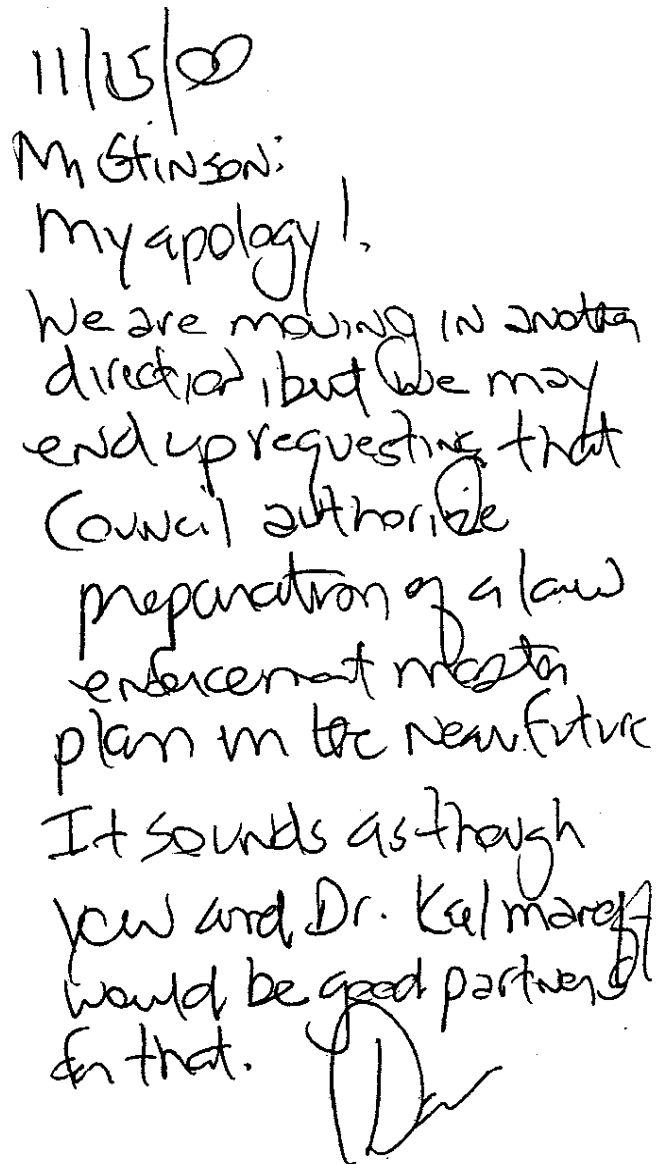 11/15/00
Mr Stinson:
My apology!
We are moving in another
direction, but we may
end up requesting that
Council authorize
preparation of a law
enforcement master
plan in the near future
It sounds as though
you and Dr. Kalmanoff
would be good partners
for that.